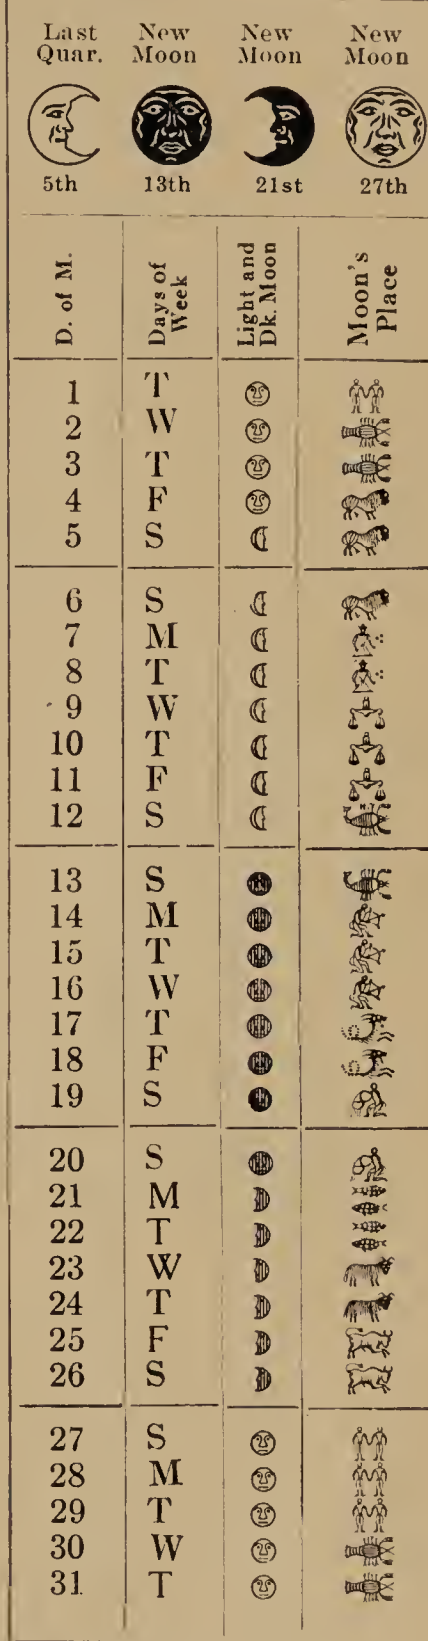 Last New New New
Quar. Moon Moon Moon
5th 13th 21st 27th
D. of M. Days of Week Light and Dk. Moon Moon's Place
1 T
2 W
3 T
4 F
5 S
6 S
7 M
8 T
9 W
10 T
11 F
12 S
13 S
14 M
15 T
16 W
17 T
18 F
19 S
20 S
21 M
22 T
23 W
24 T
25 F
26 S
27 S
28 M
29 T
30 W
31 T